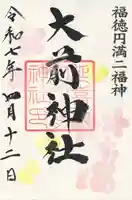 福徳円満二福神
大前神社
令和七年四月十二日